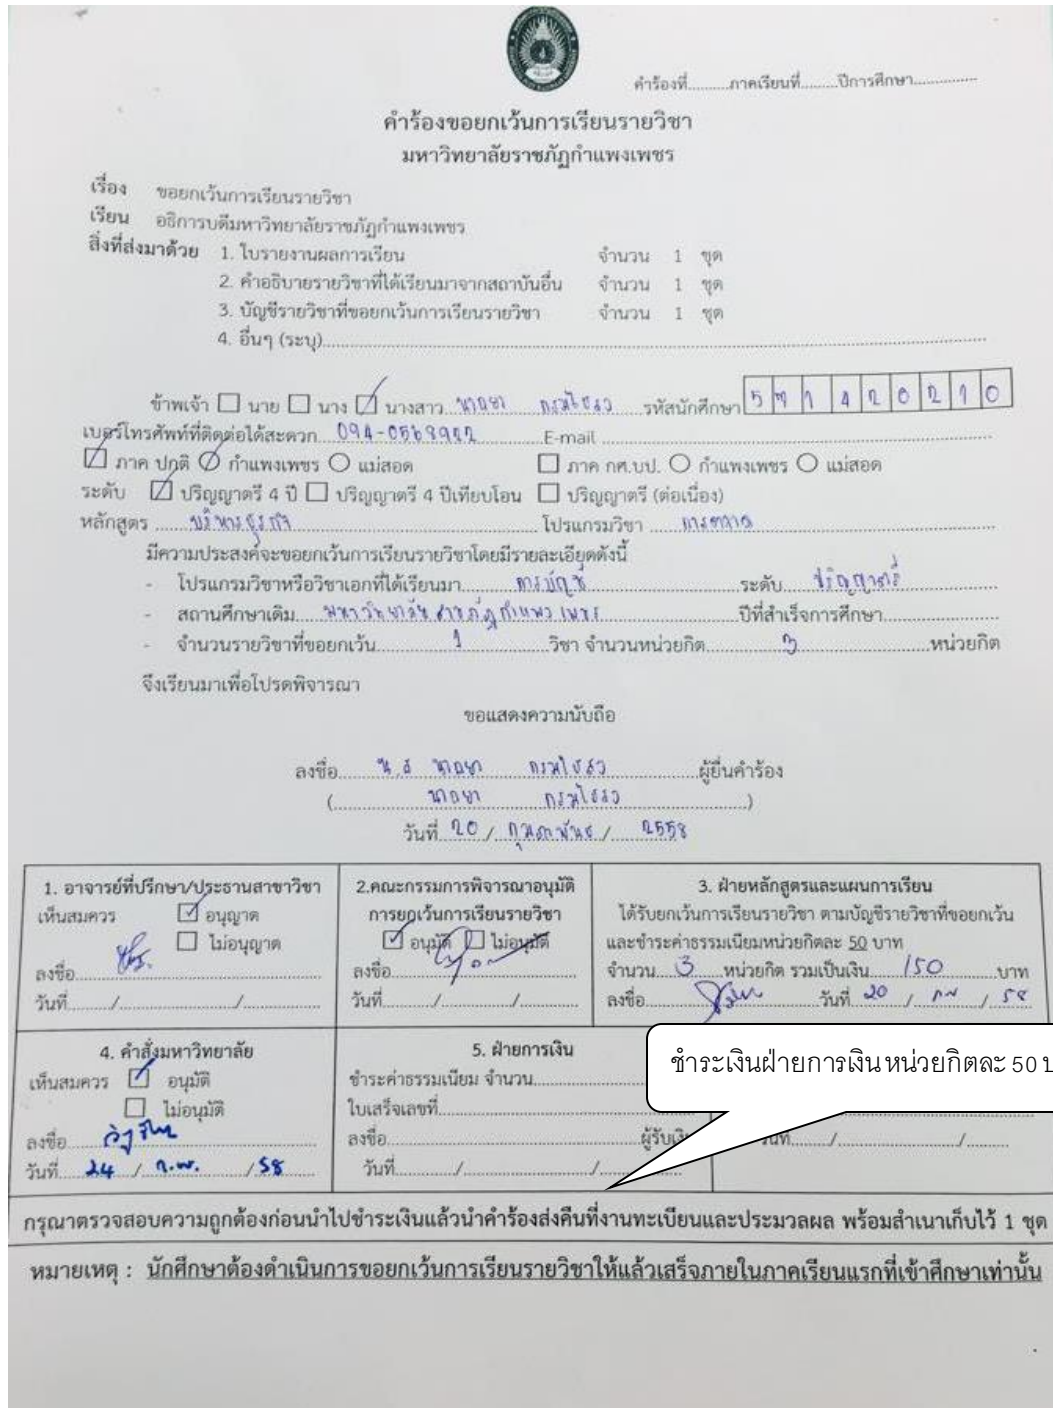 คำร้องที่..........ภาคเรียนที่.........ปีการศึกษา...............
คำร้องขอยกเว้นการเรียนรายวิชา
มหาวิทยาลัยราชภัฏกำแพงเพชร
เรื่อง ขอยกเว้นการเรียนรายวิชา
เรียน อธิการบดีมหาวิทยาลัยราชภัฏกำแพงเพชร
สิ่งที่ส่งมาด้วย 1. ใบรายงานผลการเรียน จำนวน 1 ชุด
2. คำอธิบายรายวิชาที่ได้เรียนมาจากสถาบันอื่น จำนวน 1 ชุด
3. บัญชีรายวิชาที่ขอยกเว้นการเรียนรายวิชา จำนวน 1 ชุด
4. อื่นๆ (ระบุ)
ข้าพเจ้า นาย นาง นางสาว รหัสนักศึกษา 571420210
เบอร์โทรศัพท์ที่ติดต่อได้สะดวก 094-0568922 E-mail
ภาค ปกติ กำแพงเพชร แม่สอด ภาค กศ.บป. กำแพงเพชร แม่สอด
ระดับ ปริญญาตรี 4 ปี ปริญญาตรี 4 ปีเทียบโอน ปริญญาตรี (ต่อเนื่อง)
หลักสูตร บริหารธุรกิจ โปรแกรมวิชา การตลาด
มีความประสงค์จะขอยกเว้นการเรียนรายวิชาโดยมีรายละเอียดดังนี้
- โปรแกรมวิชาหรือวิชาเอกที่ได้เรียนมา การบัญชี ระดับ ปริญญาตรี
- สถานศึกษาเดิม มหาวิทยาลัยราชภัฏกำแพงเพชร ปีที่สำเร็จการศึกษา
- จำนวนรายวิชาที่ขอยกเว้น 1 วิชา จำนวนหน่วยกิต 3 หน่วยกิต
จึงเรียนมาเพื่อโปรดพิจารณา
ขอแสดงความนับถือ
ลงชื่อ น.ส ผู้ยื่นคำร้อง
วันที่ 20 / กุมภาพันธ์ / 2558
1. อาจารย์ที่ปรึกษา/ประธานสาขาวิชา
เห็นสมควร อนุญาต
ไม่อนุญาต
ลงชื่อ
วันที่ / /
2.คณะกรรมการพิจารณาอนุมัติ
การยกเว้นการเรียนรายวิชา
อนุมัติ ไม่อนุมัติ
ลงชื่อ
วันที่ / /
3. ฝ่ายหลักสูตรและแผนการเรียน
ได้รับยกเว้นการเรียนรายวิชา ตามบัญชีรายวิชาที่ขอยกเว้น
และชำระค่าธรรมเนียมหน่วยกิตละ 50 บาท
จำนวน 3 หน่วยกิต รวมเป็นเงิน 150 บาท
ลงชื่อ วันที่ 20 / กพ / 58
4. คำสั่งมหาวิทยาลัย
เห็นสมควร อนุมัติ
ไม่อนุมัติ
ลงชื่อ
วันที่ 24 / ก.พ. / 58
5. ฝ่ายการเงิน
ชำระค่าธรรมเนียม จำนวน
ใบเสร็จเลขที่
ลงชื่อ
วันที่ / /
ชำระเงินฝ่ายการเงิน หน่วยกิตละ 50
วันที่ / /
กรุณาตรวจสอบความถูกต้องก่อนนำไปชำระเงินแล้วนำคำร้องส่งคืนที่งานทะเบียนและประมวลผล พร้อมสำเนาเก็บไว้ 1 ชุด
หมายเหตุ : นักศึกษาต้องดำเนินการขอยกเว้นการเรียนรายวิชาให้แล้วเสร็จภายในภาคเรียนแรกที่เข้าศึกษาเท่านั้น